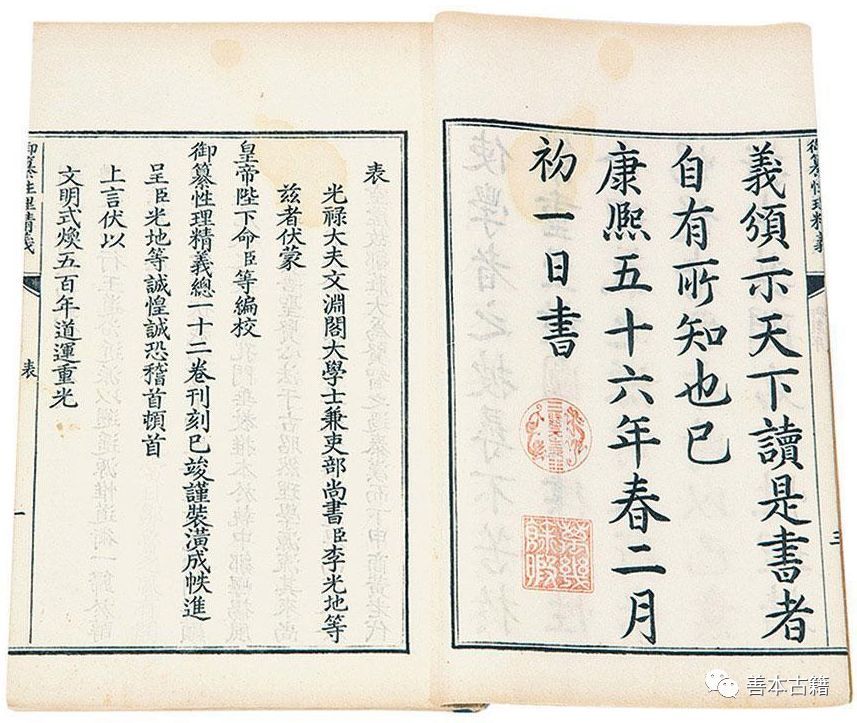 義頒示天下讀是書者
自有所知也已
康熙五十六年春二月
初一日書
萬幾餘暇
御纂性理精義
三
表
光祿大夫文淵閣大學士兼吏部尚書臣李光地等
兹者伏蒙
皇帝陛下命臣等編校
御纂性理精義總一十二卷刊刻已竣謹裝潢成帙進
呈臣光地等誠惶誠恐稽首頓首
上言伏以
文明式煥五百年道運重光
御纂性理精義
表
一
善本古籍